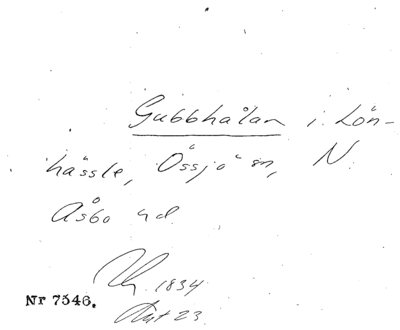 Gubbhålan i Lön-
hässle, Össjö sn, N.
Åsbo hd.
1834
Nr 7546.
23